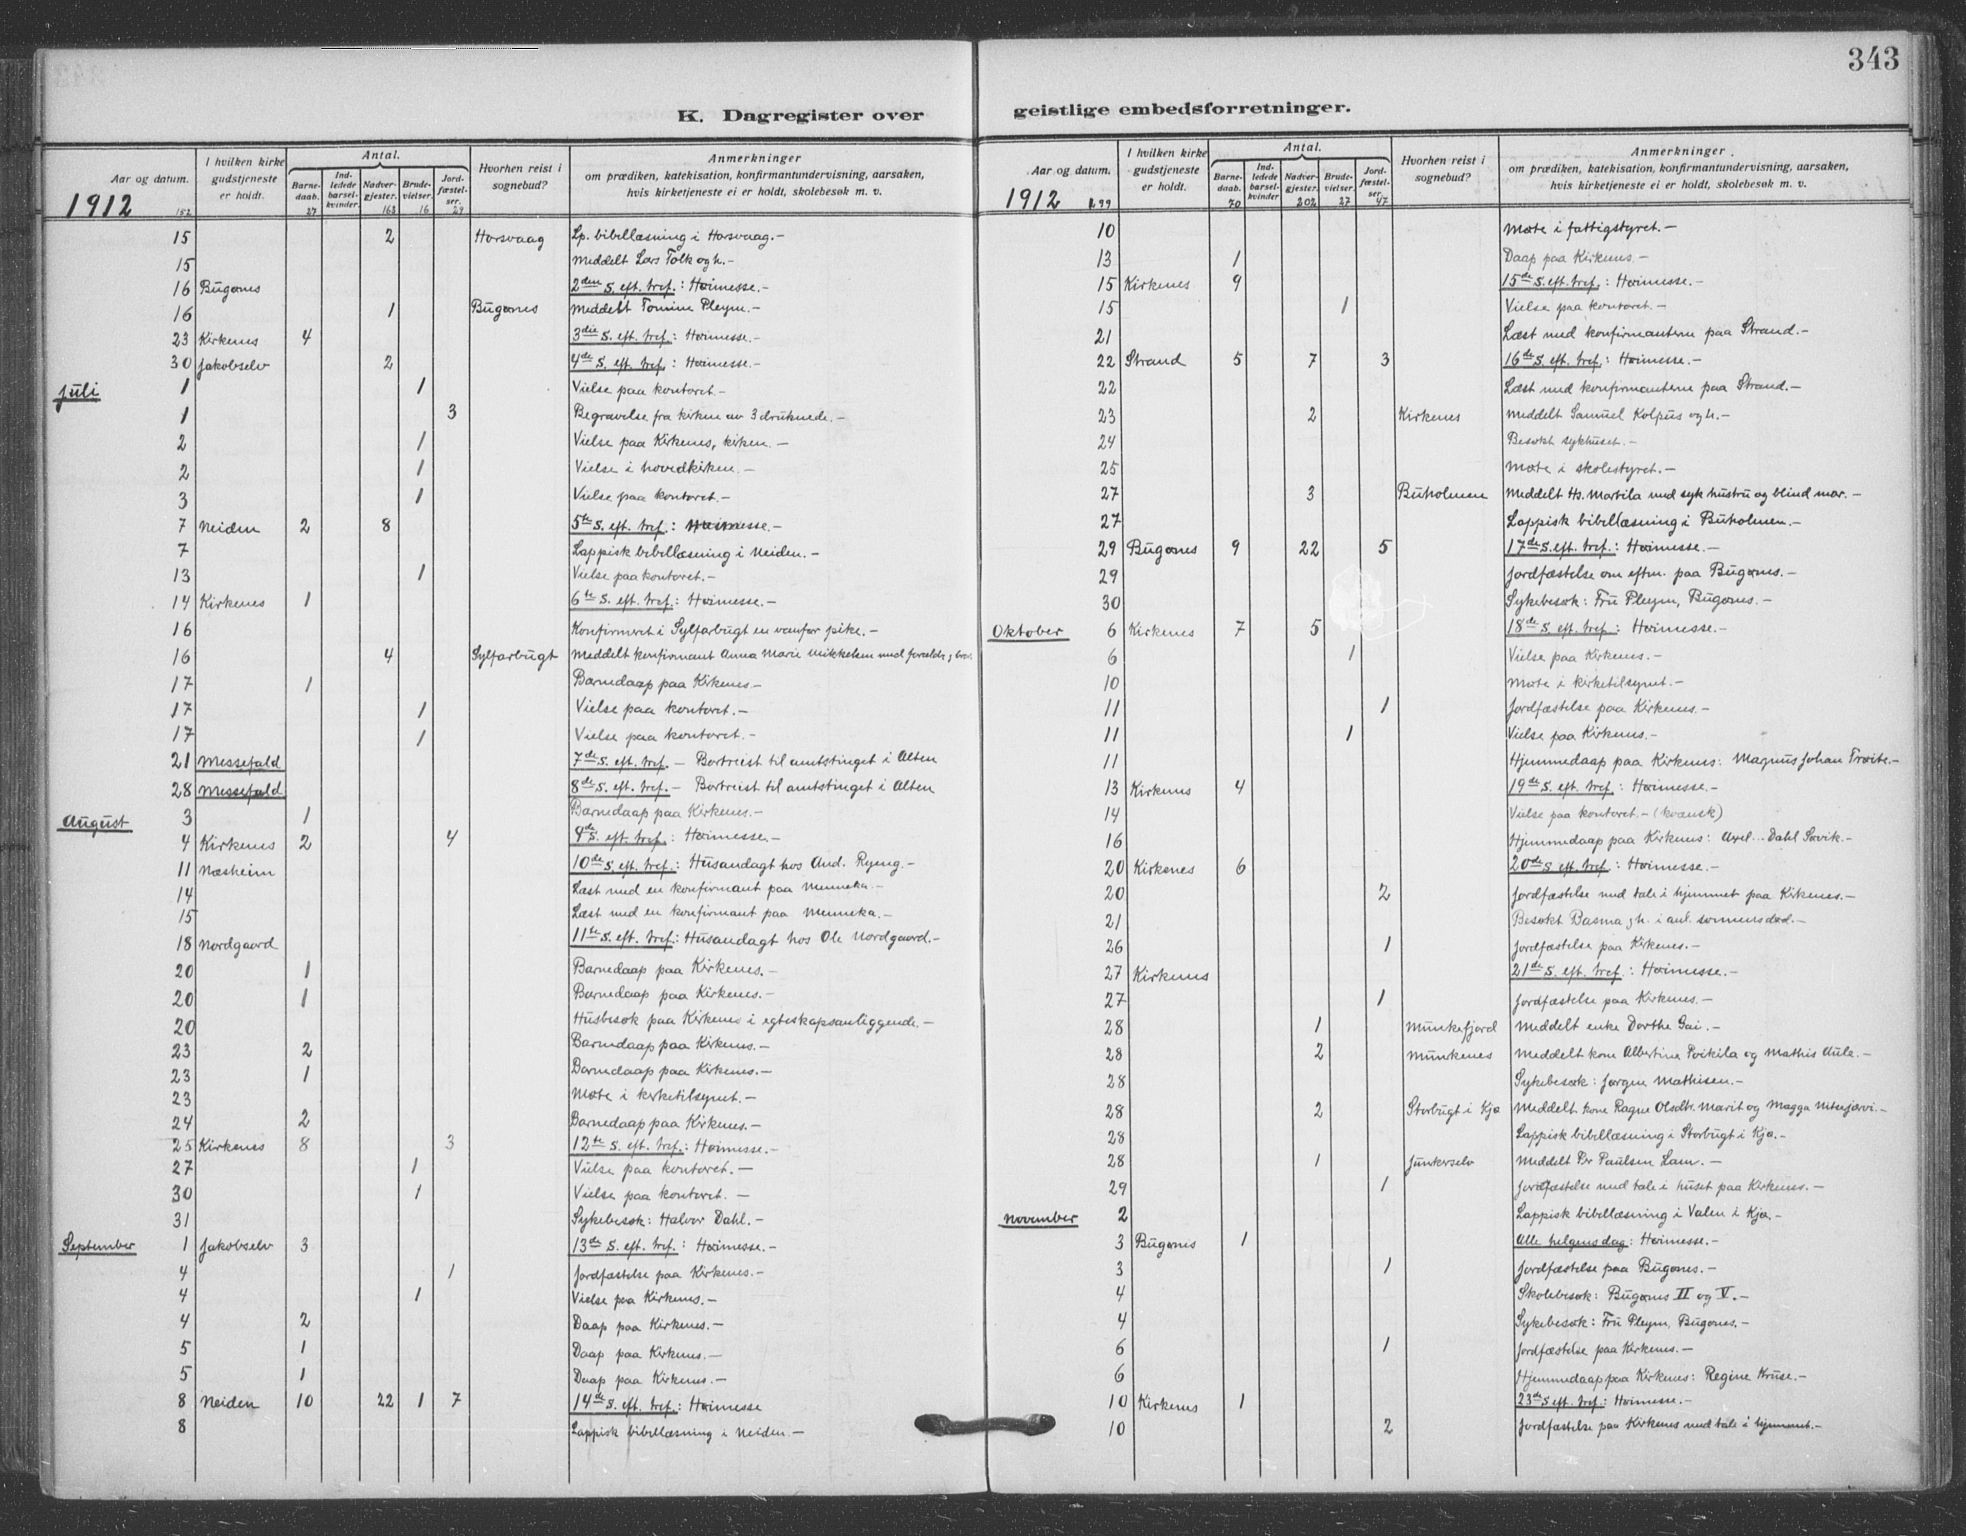 343
K. Dagregister over
geistlige embedsforretninger.
Aar og datum.
I hvilken kirke gudstjeneste er holdt.
Antal.
Barnedaab. Indledede barselkvinder. Nadvergjester. Brudevielser. Jordfæstelser.
Hvorhen reist i sognebud?
Anmerkninger
om prædiken, katekisation, konfirmantundervisning, aarsaken,
hvis kirketjeneste ei er holdt, skolebesøk m. v.
1912 152 27 163 16 29
15 2 Horsvaag Lp. bibellæsning i Horsvaag.-
15 Meddelt Lars Folk og h.-
16 Bugønes 2den S. eft. tref.: Høimesse.-
16 1 Bugønes Meddelt Tomine Pleym.-
23 Kirkenes 4 3die S. eft. tref.: Høimesse.-
30 Jakobselv 2 4de S. eft. tref.: Høimesse.-
Juli 1 1 Vielse paa kontoret.-
1 3 Begravelse fra kirken av 3 druknede.-
2 1 Vielse paa Kirkenes, kirken.-
2 1 Vielse i hovedkirken.-
3 1 Vielse paa kontoret.-
7 Neiden 2 8 5te S. eft. tref.: Høimesse.-
7 Lappisk bibellæsning i Neiden.-
13 1 Vielse paa kontoret.-
14 Kirkenes 1 6te S. eft. tref.: Høimesse.-
16 Konfirmert i Sylfarbugt en vanfør pike.-
16 4 Sylfarbugt Meddelt konfirmant Anna Marie Mikkelsen med forældr.
17 1 Barnedaap paa Kirkenes.-
17 1 Vielse paa kontoret.-
17 1 Vielse paa kontoret.-
21 Messefald 7de S. eft. tref. - Bortreist til amtstinget i Alten
28 Messefald 8de S. eft. tref. - Bortreist til amtstinget i Alten
August 3 1 Barnedaap paa Kirkenes.-
4 Kirkenes 2 4 9de S. eft. tref.: Høimesse.-
11 Næsheim 10de S. eft. tref.: Husandagt hos And. Ryeng.-
14 Læst med en konfirmant paa Menneka.-
15 Læst med en konfirmant paa Menneka.-
18 Nordgaard 11te S. eft. tref.: Husandagt hos Ole Nordgaard.-
20 1 Barnedaap paa Kirkenes.-
20 1 Barnedaap paa Kirkenes.-
20 Husbesøk paa Kirkenes i egteskapsanliggende.-
23 2 Barnedaap paa Kirkenes.-
23 1 Barnedaap paa Kirkenes.-
23 Møte i kirketilsynet.-
24 2 Barnedaap paa Kirkenes.-
25 Kirkenes 8 3 12te S. eft. tref.: Høimesse.-
27 1 Vielse paa kontoret.-
30 1 Vielse paa kontoret.-
31 Sykebesøk: Halvor Dahl.-
September 1 Jakobselv 3 13de S. eft. tref.: Høimesse.-
4 1 Jordfæstelse paa Kirkenes.-
4 1 Vielse paa Kirkenes.-
4 2 Daap paa Kirkenes.-
5 1 Daap paa Kirkenes.-
5 1 Daap paa Kirkenes.-
8 Neiden 10 22 1 7 14de S. eft. tref.: Høimesse
8 Lappisk bibellæsning i Neiden.-
Aar og datum.
I hvilken kirke gudstjeneste er holdt.
Antal.
Barnedaab. Indledede barselkvinder Nadvergjester. Brudevielser. Jordfæstelser.
Hvorhen reist i sognebud?
Anmerkninger
om prædiken, katekisation, konfirmantundervisning, aarsaken,
hvis kirketjeneste ei er holdt, skolebesøk m. v.
1912 70 202 27 47
10 Møte i fattigstyret.-
13 1 Daap paa Kirkenes.-
15 Kirkenes 9 15de S. eft. tref.: Høimesse.-
15 1 Vielse paa kontoret.-
21 Læst med konfirmanterne paa Strand.-
22 Strand 5 7 3 16de S. eft. tref.: Høimesse.-
22 Læst med konfirmanterne paa Strand.-
23 2 Kirkenes Meddelt Samuel Kolpus og h.-
24 Besøkt sykhuset.-
25 Møte i skolestyret.-
27 3 Buholmen Meddelt Hs. Martila med syk hustru og blind mor.-
27 Lappisk bibellæsning i Buholmen.-
29 Bugønes 9 22 5 17de S. eft. tref.: Høimesse.-
29 Jordfæstelse om eftm. paa Bugønes.-
30 Sykebesøk: Fru Pleym, Bugønes.-
Oktober 6 Kirkenes 7 5 18de S. eft. tref.: Høimesse.-
6 1 Vielse paa Kirkenes.-
10 Møte i kirketilsynet.-
11 1 Jordfæstelse paa Kirkenes.-
11 1 Vielse paa Kirkenes.-
11 Hjemmedaap paa Kirkenes: Magnus Johan Trøite.-
13 Kirkenes 4 19de S. eft. tref.: Høimesse.-
14 Vielse paa kontoret.- (kvænsk)
16 Hjemmedaap paa Kirkenes: Axel Dahl Søvik.-
20 Kirkenes 6 20de S. eft. tref.: Høimesse.-
20 2 Jordfæstelse med tale i hjemmet paa Kirkenes.-
21 Besøkt Basma og h. i anl. sønnens død.-
26 1 Jordfæstelse paa Kirkenes.-
27 Kirkenes 21de S. eft. tref.: Høimesse.-
27 1 Jordfæstelse paa Kirkenes.-
28 1 Munkefjord Meddelt enke Dorthe Gai.-
28 2 Munkenes Meddelt kone Albertine Poikila og Mathis Aula.-
28 Sykebesøk: Jørgen Mathisen.-
28 2 Storbugt i Kjø Meddelt kone Ragne Olsdtr. Marit og Magga Nitsejærvi.-
28 Lappisk bibellæsning i Storbugt i Kjø.-
28 1 Junkerselv Meddelt Per Paulsen Lam.-
29 1 Jordfæstelse med tale i huset paa Kirkenes.-
November 2 Lappisk bibellæsning i Valen i Kjø.-
3 Bugønes 1 Alle helgensdag: Høimesse.-
3 1 Jordfæstelse paa Bugønes.-
4 Skolebesøk: Bugønes II og V.-
4 Sykebesøk: Fru Pleym, Bugønes.-
6 1 Jordfæstelse paa Kirkenes.-
6 Hjemmedaap paa Kirkenes: Regine Kruse.-
10 Kirkenes 1 23de S. eft. tref.: Høimesse.-
10 2 Jordfæstelse paa Kirkenes med tale i hjemmet.-